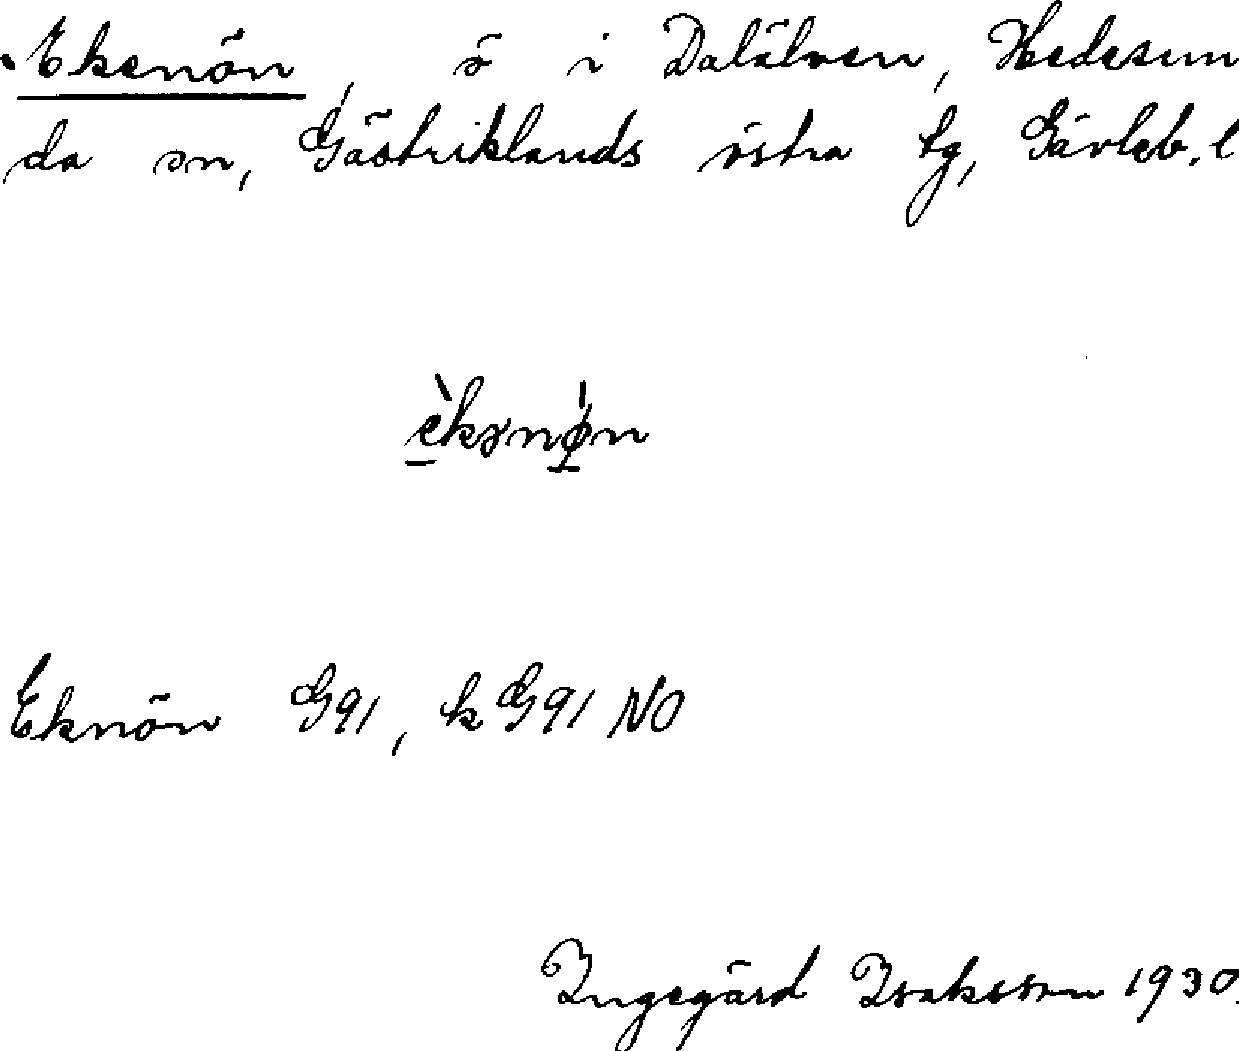 Ekenön, ö i Dalälven, Hedesun
da sn, Gästriklands östra tg, Gävleb. l
èkɘnø̍n
Eknön G91, k G91 NO
Ingegärd Isaksson 1930.